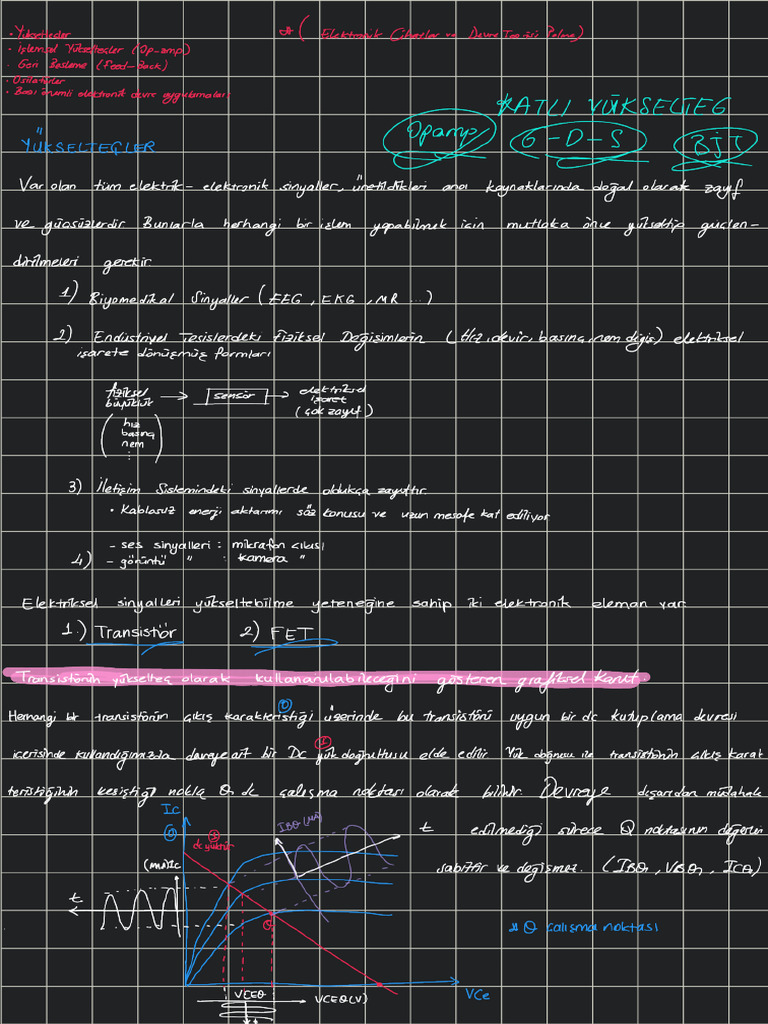 • Yükselteçler
* ( Elektronik Cihazlar ve Devre Teorisi Palme)
• İşlemsel Yükselteçler (Op-amp)
• Geri Besleme (Feed-Back)
• Osilatörler
• Bazı önemli elektronik devre uygulamaları
KATLI YÜKSELTEÇ
Opamp G-D-S BJT
YÜKSELTEÇLER
Var olan tüm elektrik-elektronik sinyaller, üretildikleri ana kaynaklarında doğal olarak zayıf
ve güçsüzlerdir Bunlarla herhangi bir işlem yapabilmek için mutlaka önce yükseltip güçlen-
dirilmeleri gerekir
1) Biyomedikal Sinyaller (EEG, EKG, MR ...)
2) Endüstriyel Tesislerdeki Fiziksel Değişimlerin (Hız, devir, basınç, nem değiş) elektriksel
işarete dönüşmüş formları
fiziksel büyüklük → sensör → elektriksel işaret (çok zayıf)
( hız
basınç
nem
⋮ )
3) İletişim Sistemindeki sinyallerde oldukça zayıftır
• Kablosuz enerji aktarımı söz konusu ve uzun mesafe kat ediliyor
4) - ses sinyalleri : mikrafon çıkısı
- görüntü " : kamera "
Elektriksel sinyalleri yükseltebilme yeteneğine sahip iki elektronik eleman var
1.) Transistör 2) FET
Transistörün yükselteç olarak kullananulabileceğini gösteren grafiksel kanıt
Herhangi bir transistörün çıkış karakteristiği ⓪ üzerinde bu transistörü uygun bir dc kutuplama devresi
içerisinde kullandığımızda devreye ait bir DC yük doğrultusu ① elde edilir Yük doğrusu ile transistörün çıkış karak
teristiğinin kesiştiği nokta Q dc çalışma noktası olarak bilinir. Devreye dışarıdan müdahale
edilmediği sürece Q noktasının değerleri
sabittir ve değişmez. (IBQ, VBQ, ICQ)
* Q çalışma noktası
Ic
⓪
①
dc yükü
IBQ (μA)
t
(mA) Ic
t
Q
VCEQ
VCEQ(V)
VCe
t